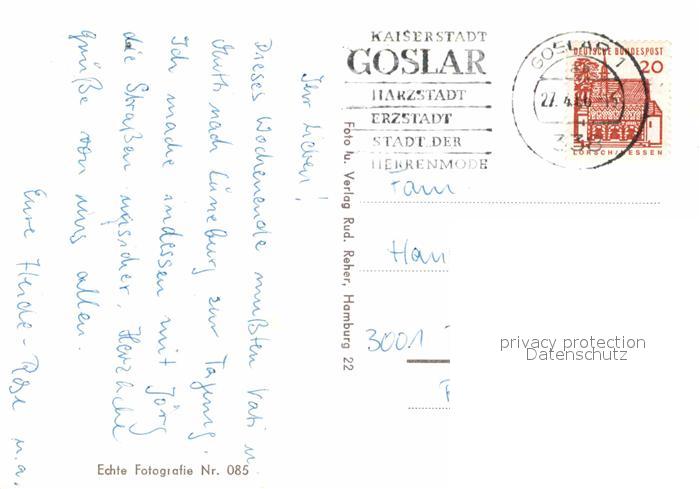 Ihr Lieben!
Dieses Wochenende mußten Vati u.
Muth nach Lüneburg zur Tagung.
Ich mache indessen mit Jörg
die Straßen unsicher. Herzliche
Grüße von uns allen.
Eure Heide-Rose u.a.
Echte Fotografie Nr. 085
Foto u. Verlag Rud. Reher, Hamburg 22
KAISERSTADT
GOSLAR
HARZSTADT
ERZSTADT
STADT DER
HERRENMODE
GOSLAR 1
27.4.66
338
DEUTSCHE BUNDESPOST
20
LORSCH/HESSEN
Fam
Han
3001
privacy protection
Datenschutz